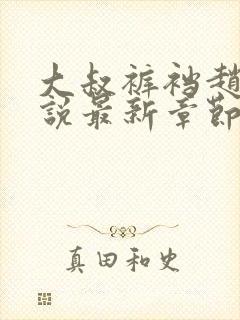 大叔裤裆趙
説最新章節
真田和史